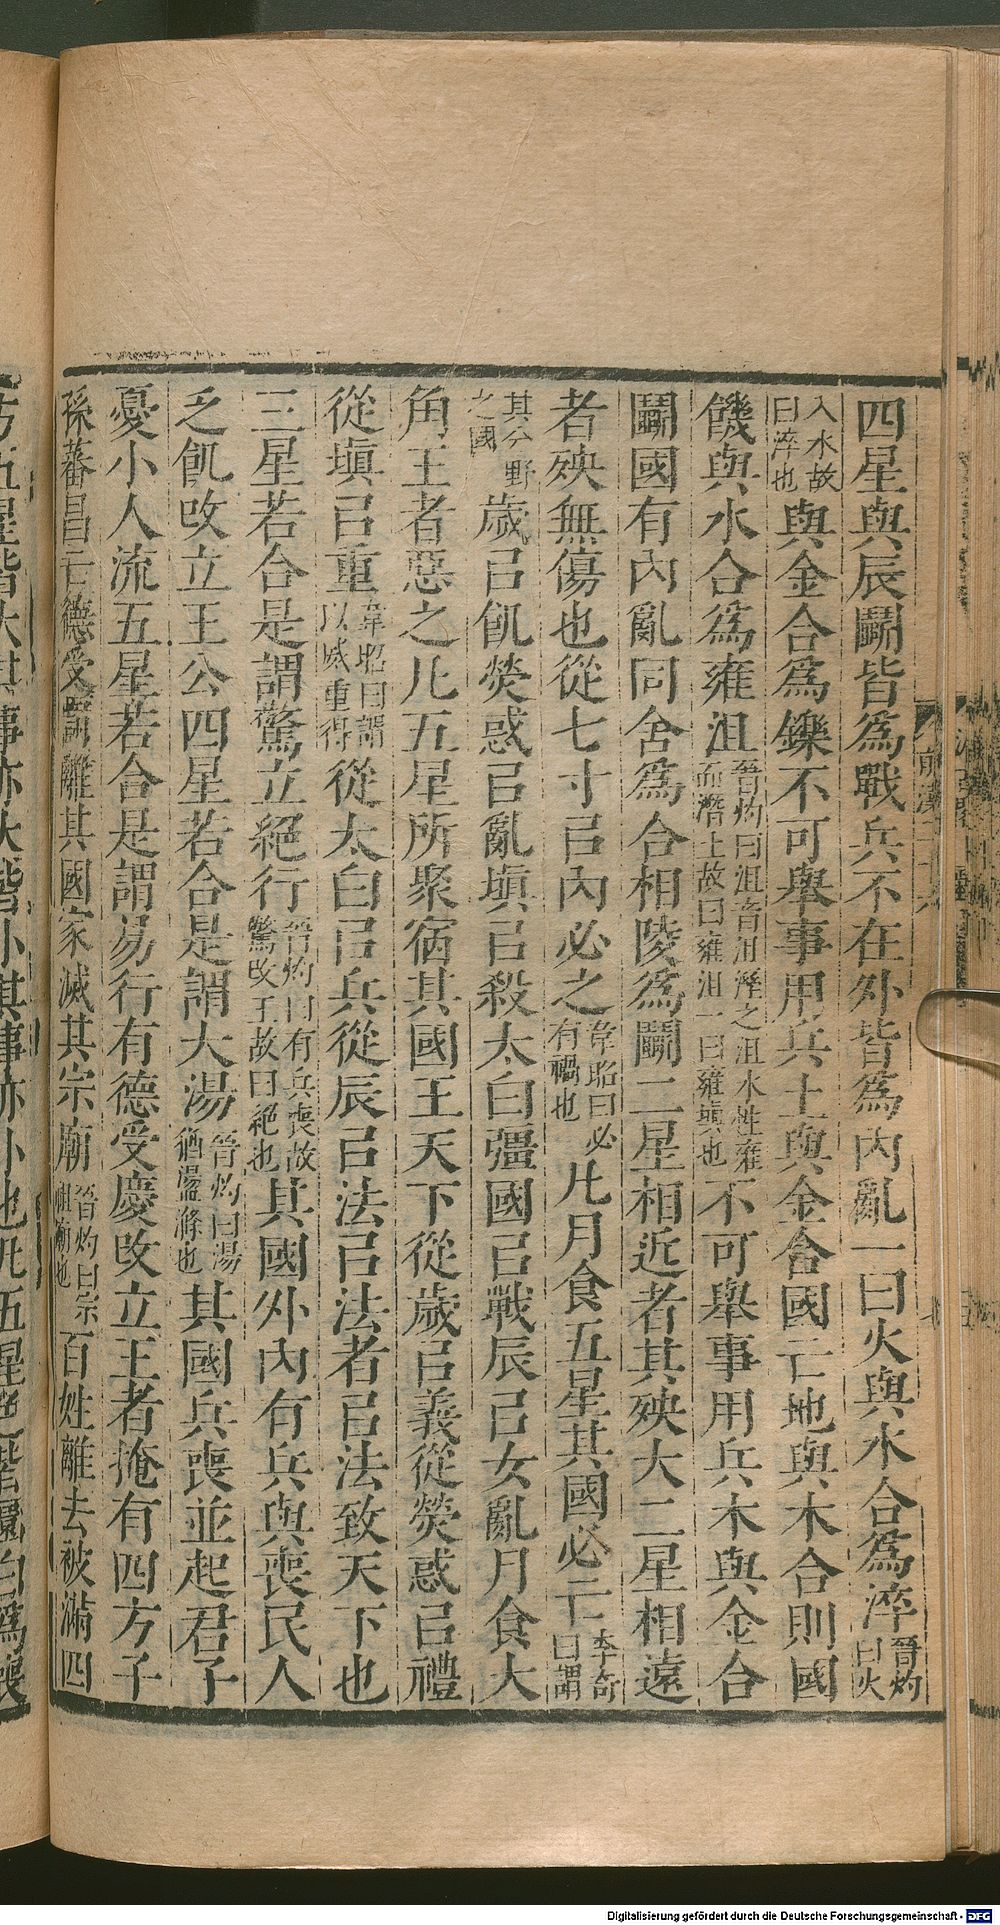 四星與辰鬬皆爲戰兵不在外皆爲内亂一曰火與水合爲淬晉灼曰火
入水故曰淬也與金合爲鑠不可舉事用兵土與金合國亡地與木合則國
饑與水合爲雍沮晉灼曰沮音沮溼之沮水性雍而潛土故曰雍沮一曰雍塡也不可舉事用兵木與金合
鬬國有内亂同舍爲合相陵爲鬬二星相近者其殃大二星相遠
者殃無傷也從七寸㠯内必之韋昭曰必有禍也凡月食五星其國必亡李奇曰謂
其分野之國歲㠯飢熒惑㠯亂塡㠯殺太白彊國㠯戰辰㠯女亂月食大
角王者惡之凡五星所聚宿其國王天下從歲㠯義從熒惑㠯禮
從塡㠯重韋昭曰謂以威重得從太白㠯兵從辰㠯法㠯法者㠯法致天下也
三星若合是謂驚立絶行晉灼曰有兵喪故驚改王故曰絶也其國外内有兵與喪民人
乏飢改立王公四星若合是謂大湯晉灼曰湯猶盪滌也其國兵喪並起君子
憂小人流五星若合是謂易行有德受慶改立王者掩有四方子
孫蕃昌亡德受罰離其國家滅其宗廟晉灼曰宗祖廟也百姓離去被滿四
Digitalisierung gefördert durch die Deutsche Forschungsgemeinschaft - DFG